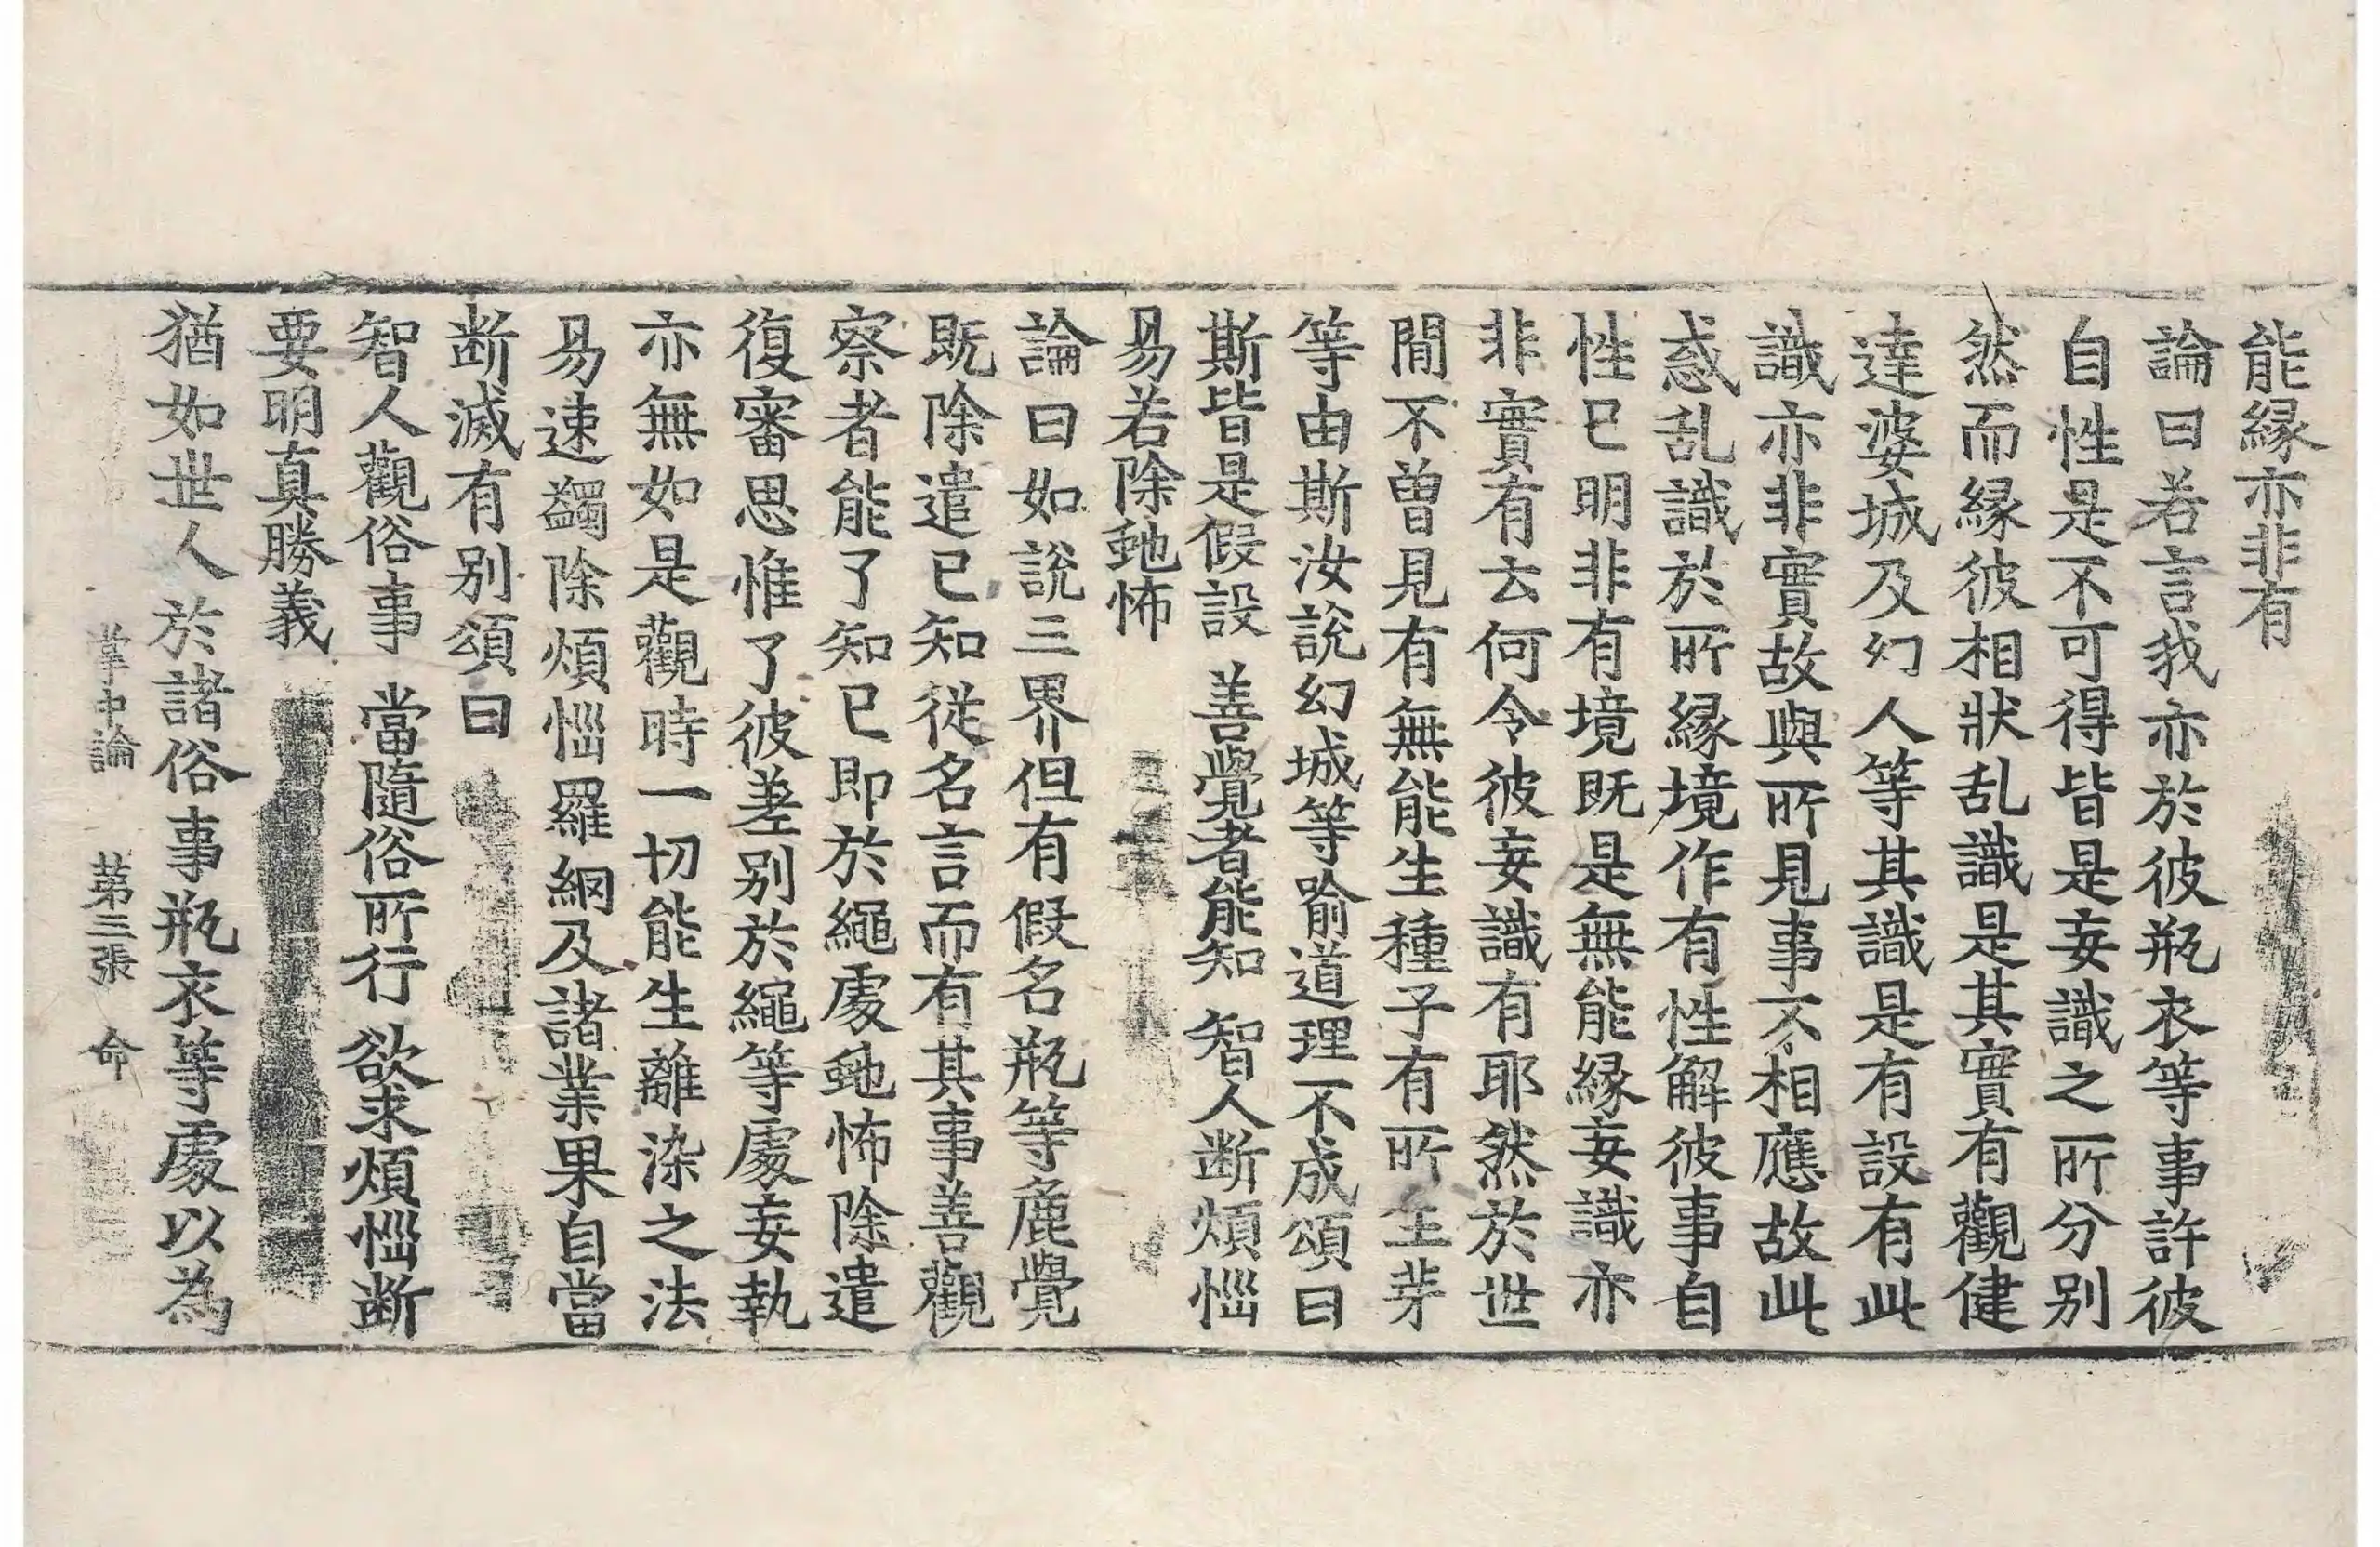 能縁亦非有
論曰若言我亦於彼瓶衣等事許彼
自性是不可得皆是妄識之所分別
然而縁彼相狀乱識是其實有觀健
達婆城及幻人等其識是有設有此
識亦非實故與所見事不相應故此
惑乱識於所縁境作有性解彼事自
性已明非有境既是無能縁妄識亦
非實有云何令彼妄識有耶然於世
間不曽見有無能生種子有所生芽
等由斯汝說幻城等喻道理不成頌曰
斯皆是假設 善覺者能知 智人断煩惱
易若除虵怖
論曰如說三界但有假名瓶等麁覺
既除遣已知從名言而有其事善觀
察者能了知已即於繩處虵怖除遣
復審思惟了彼差別於繩等處妄執
亦無如是觀時一切能生離染之法
易速蠲除煩惱羅網及諸業果自當
断滅有别頌曰
智人觀俗事 當隨俗所行 欲求煩惱断
要明真勝義
猶如世人於諸俗事瓶衣等處以為
掌中論 第三張 命